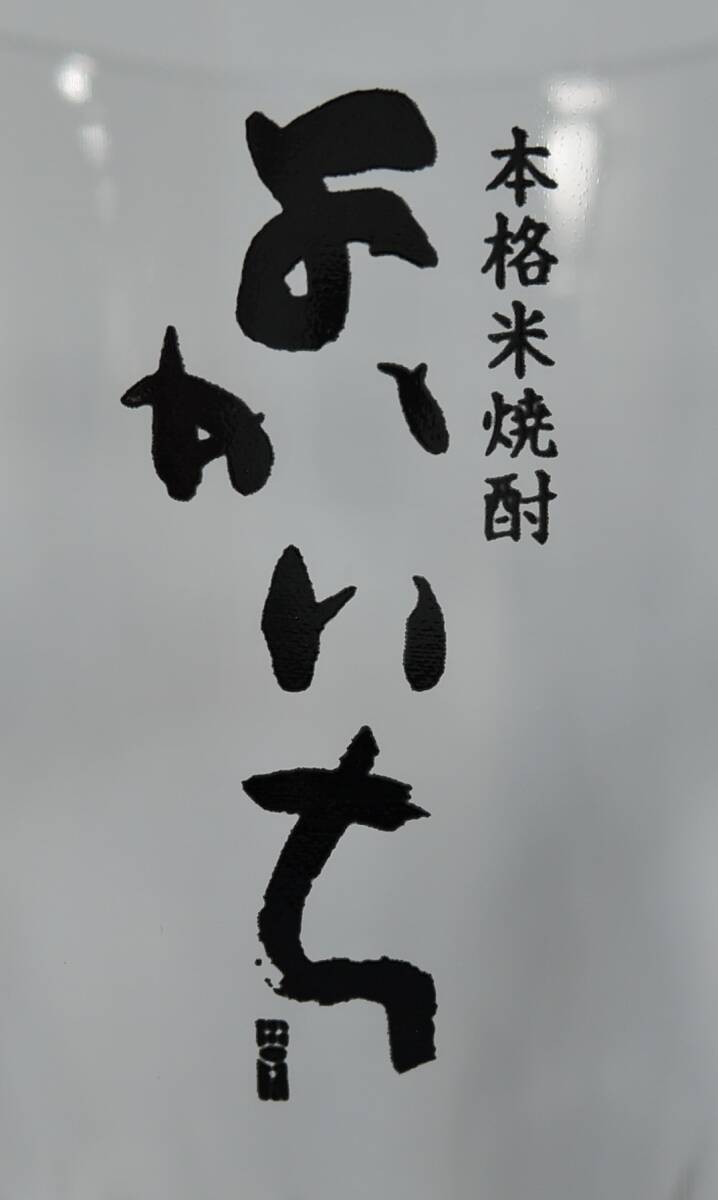 本格米焼酎
よかいち